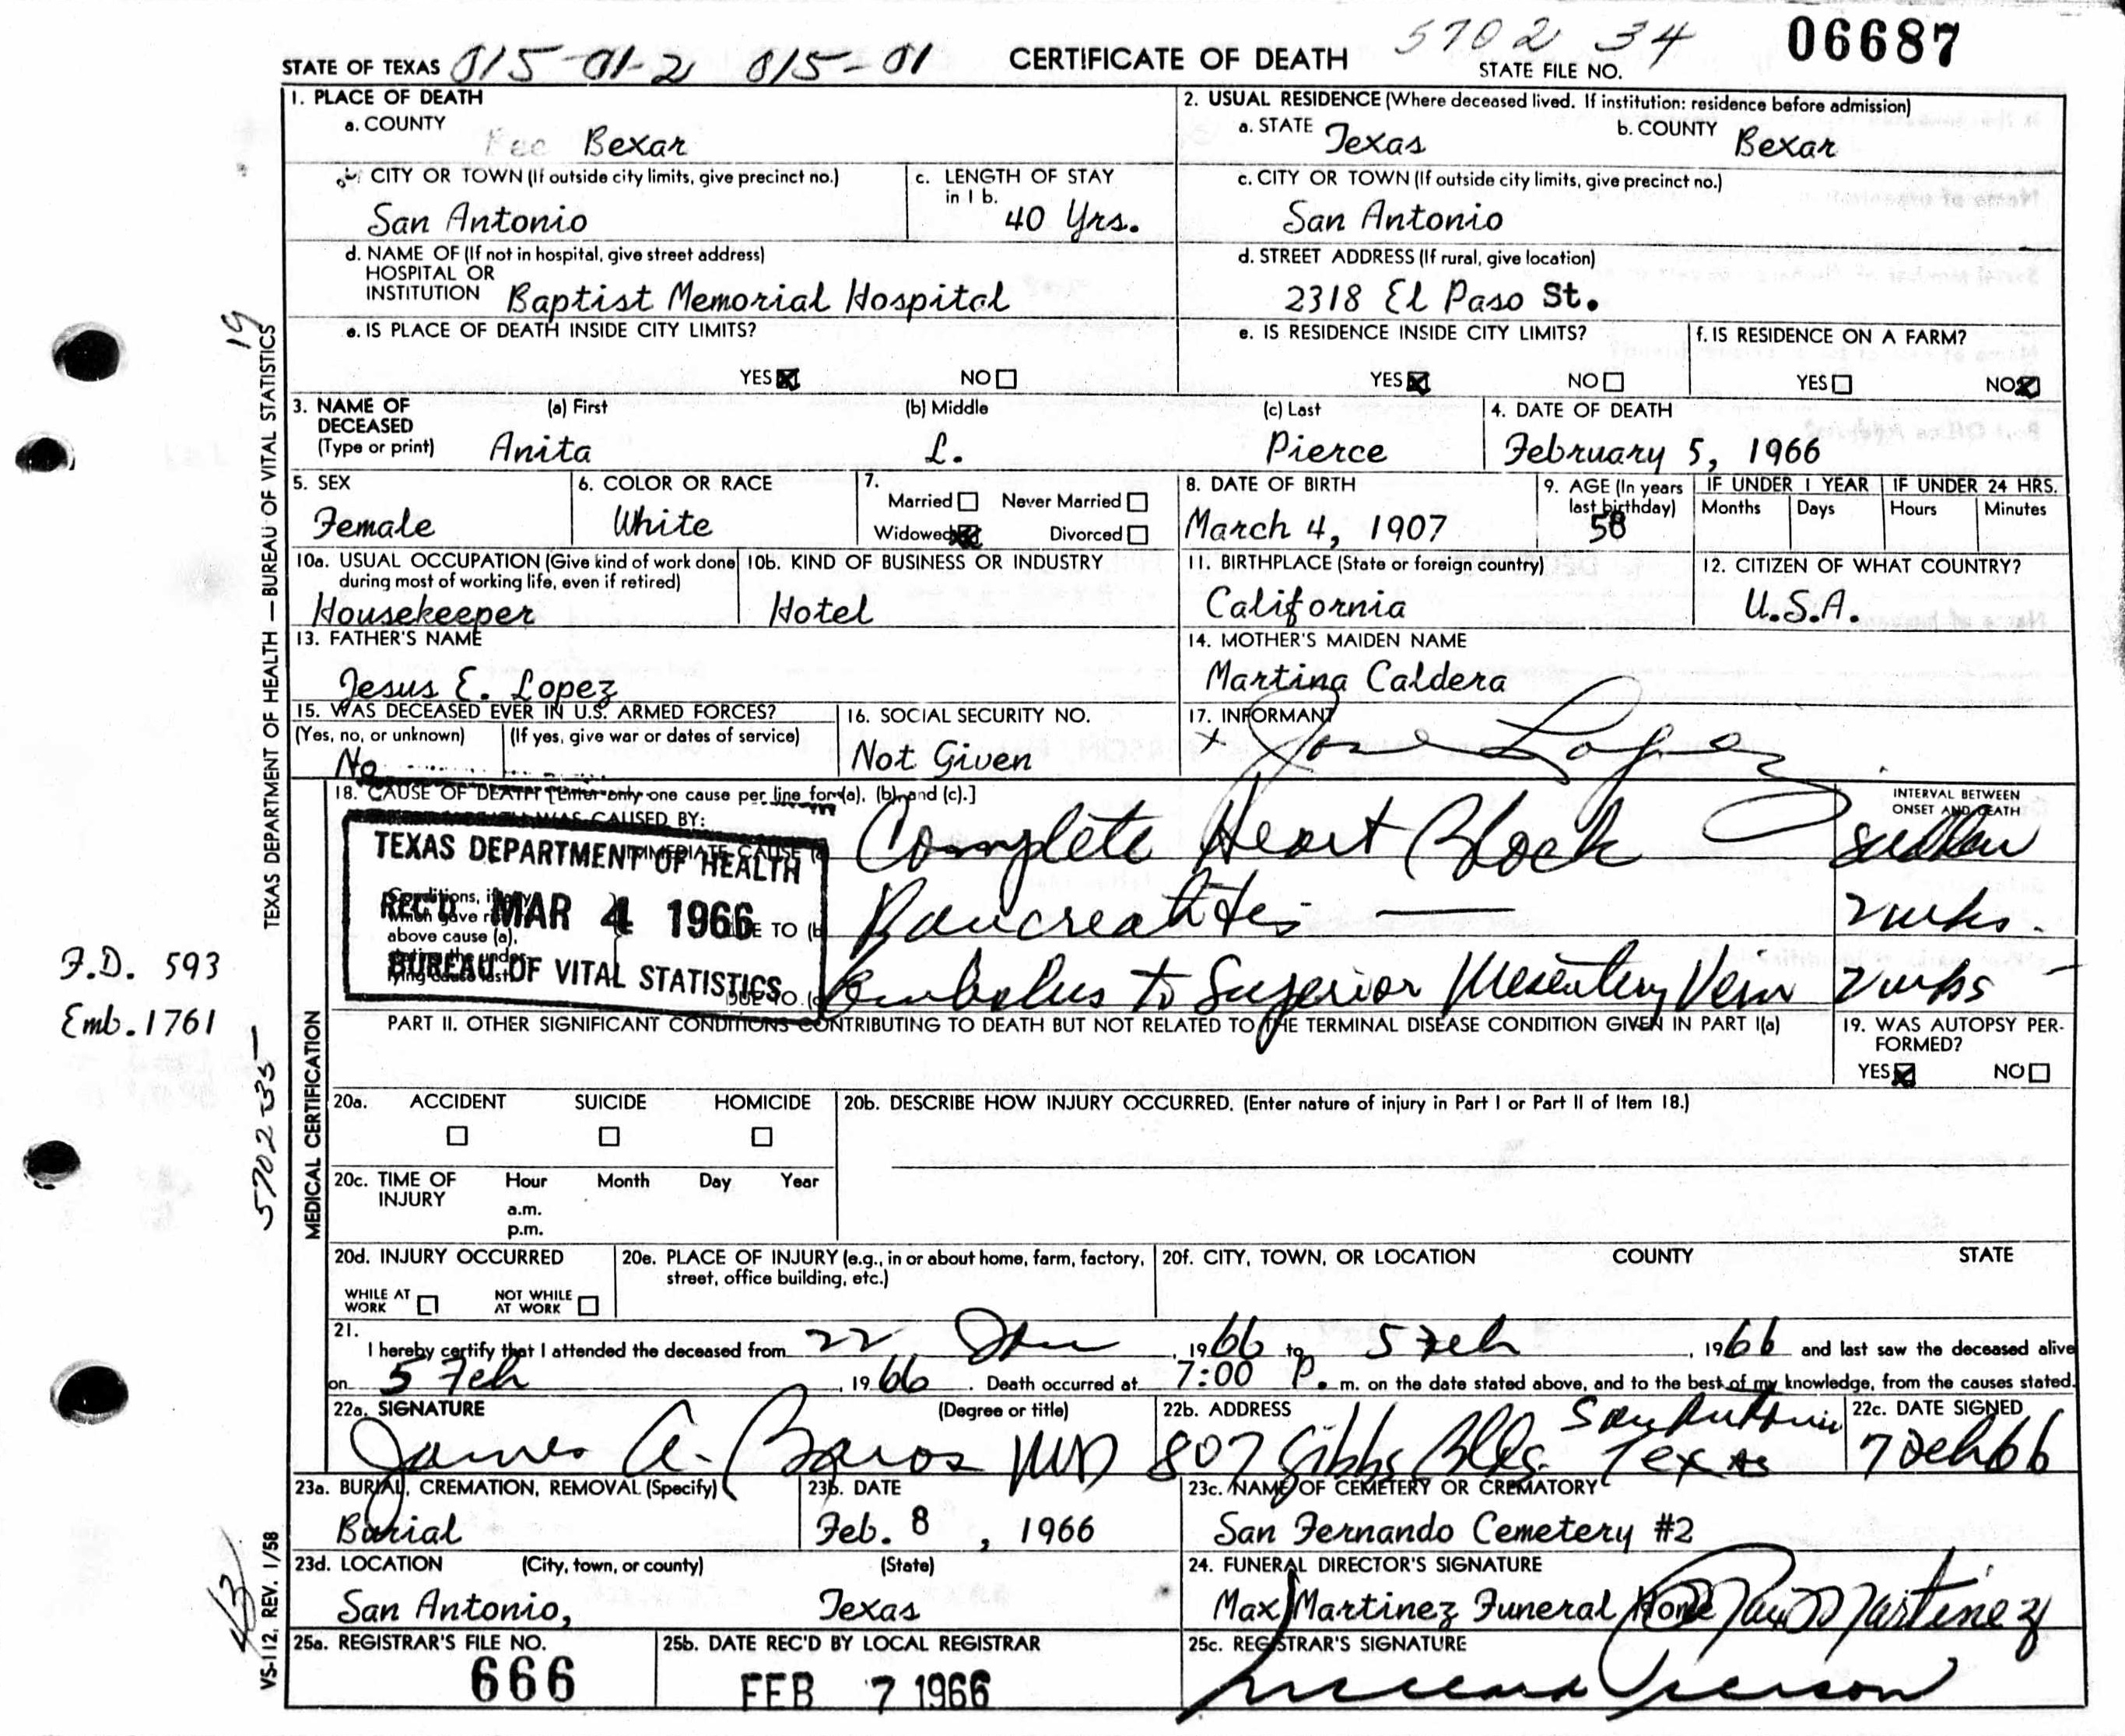 5702 34
06687
STATE OF TEXAS 015-01-2 015-01 CERTIFICATE OF DEATH STATE FILE NO.
1. PLACE OF DEATH
a. COUNTY
Bexar
2. USUAL RESIDENCE (Where deceased lived. If institution: residence before admission)
a. STATE Texas b. COUNTY Bexar
CITY OR TOWN (If outside city limits, give precinct no.)
San Antonio
c. LENGTH OF STAY in 1 b.
40 Yrs.
c. CITY OR TOWN (If outside city limits, give precinct no.)
San Antonio
d. NAME OF (If not in hospital, give street address)
HOSPITAL OR
INSTITUTION Baptist Memorial Hospital
d. STREET ADDRESS (If rural, give location)
2318 El Paso St.
e. IS PLACE OF DEATH INSIDE CITY LIMITS?
YES NO
e. IS RESIDENCE INSIDE CITY LIMITS?
YES NO
f. IS RESIDENCE ON A FARM?
YES NO
3. NAME OF DECEASED (Type or print)
(a) First (b) Middle (c) Last
Anita L. Pierce
4. DATE OF DEATH
February 5, 1966
5. SEX
Female
6. COLOR OR RACE
White
7.
Married Never Married
Widowed Divorced
8. DATE OF BIRTH
March 4, 1907
9. AGE (In years last birthday)
58
IF UNDER 1 YEAR
Months Days
IF UNDER 24 HRS.
Hours Minutes
10a. USUAL OCCUPATION (Give kind of work done during most of working life, even if retired)
Housekeeper
10b. KIND OF BUSINESS OR INDUSTRY
Hotel
11. BIRTHPLACE (State or foreign country)
California
12. CITIZEN OF WHAT COUNTRY?
U.S.A.
13. FATHER'S NAME
Jesus E. Lopez
14. MOTHER'S MAIDEN NAME
Martina Caldera
15. WAS DECEASED EVER IN U.S. ARMED FORCES?
(Yes, no, or unknown) (If yes, give war or dates of service)
No
16. SOCIAL SECURITY NO.
Not Given
17. INFORMANT
x Jose Lopez
18. CAUSE OF DEATH [Enter only one cause per line for (a), (b), and (c).]
CAUSED BY:
IMMEDIATE CAUSE (a
Complete Heart Block
INTERVAL BETWEEN ONSET AND DEATH
sudden
Conditions, if any
which gave ri
above cause (a),
stating the under-
lying cause last.
DUE TO (b
Pancreatitis
2 wks.
DUE TO (c
Embolus to Superior Mesentery Vein
2 wks
TEXAS DEPARTMENT OF HEALTH
REC'D MAR 4 1966
BUREAU OF VITAL STATISTICS
PART II. OTHER SIGNIFICANT CONDITIONS CONTRIBUTING TO DEATH BUT NOT RELATED TO THE TERMINAL DISEASE CONDITION GIVEN IN PART I(a)
19. WAS AUTOPSY PERFORMED?
YES NO
20a. ACCIDENT SUICIDE HOMICIDE
20b. DESCRIBE HOW INJURY OCCURRED. (Enter nature of injury in Part I or Part II of Item 18.)
20c. TIME OF INJURY
Hour Month Day Year
a.m.
p.m.
20d. INJURY OCCURRED
WHILE AT WORK NOT WHILE AT WORK
20e. PLACE OF INJURY (e.g., in or about home, farm, factory, street, office building, etc.)
20f. CITY, TOWN, OR LOCATION COUNTY STATE
21.
I hereby certify that I attended the deceased from 22 Jan, 1966 to 5 Feb, 1966 and last saw the deceased alive
on 5 Feb, 1966. Death occurred at 7:00 P. m. on the date stated above, and to the best of my knowledge, from the causes stated.
22a. SIGNATURE (Degree or title)
James A. Baros MD
22b. ADDRESS
807 Gibbs Bldg. San Antonio Texas
22c. DATE SIGNED
7 Feb 66
23a. BURIAL, CREMATION, REMOVAL (Specify)
Burial
23b. DATE
Feb. 8, 1966
23c. NAME OF CEMETERY OR CREMATORY
San Fernando Cemetery #2
23d. LOCATION (City, town, or county) (State)
San Antonio, Texas
24. FUNERAL DIRECTOR'S SIGNATURE
Max Martinez Funeral Home Martinez
25a. REGISTRAR'S FILE NO.
666
25b. DATE REC'D BY LOCAL REGISTRAR
FEB 7 1966
25c. REGISTRAR'S SIGNATURE
TEXAS DEPARTMENT OF HEALTH — BUREAU OF VITAL STATISTICS
19
MEDICAL CERTIFICATION
F.D. 593
Emb. 1761
5702-35-
VS-112, REV. 1/58